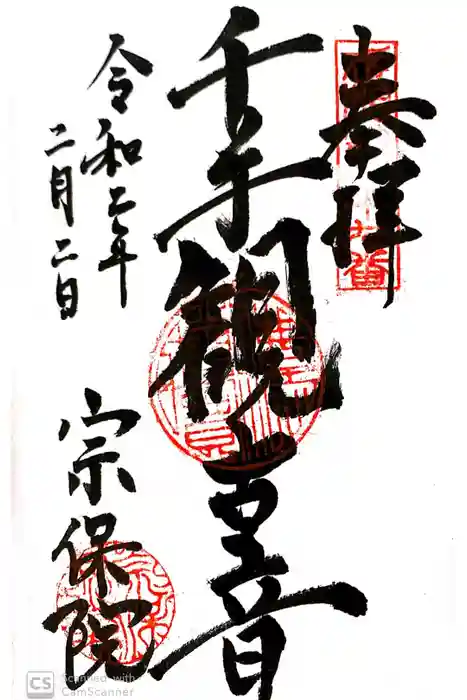 奉拝
千手観世音
令和二年
二月二日
宗保院
CS Scanned with
CamScanner